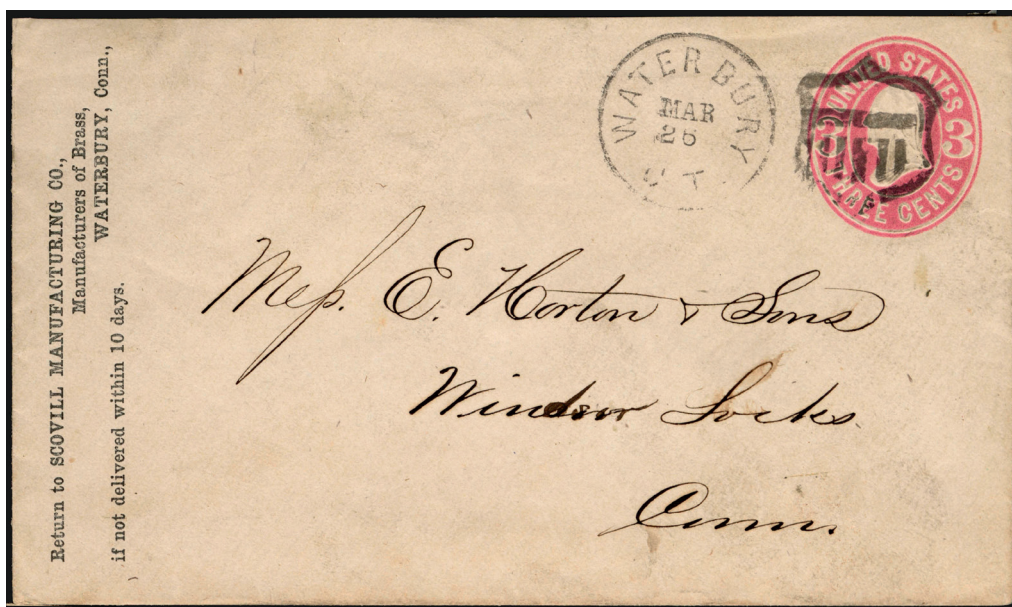 Return to SCOVILL MANUFACTURING CO.,
Manufacturers of Brass,
WATERBURY, Conn.,
if not delivered within 10 days.
WATERBURY
MAR
26
CT
UNITED STATES
3 3
THREE CENTS
Mess. E. Horton & Sons
Windsor Locks
Conn.